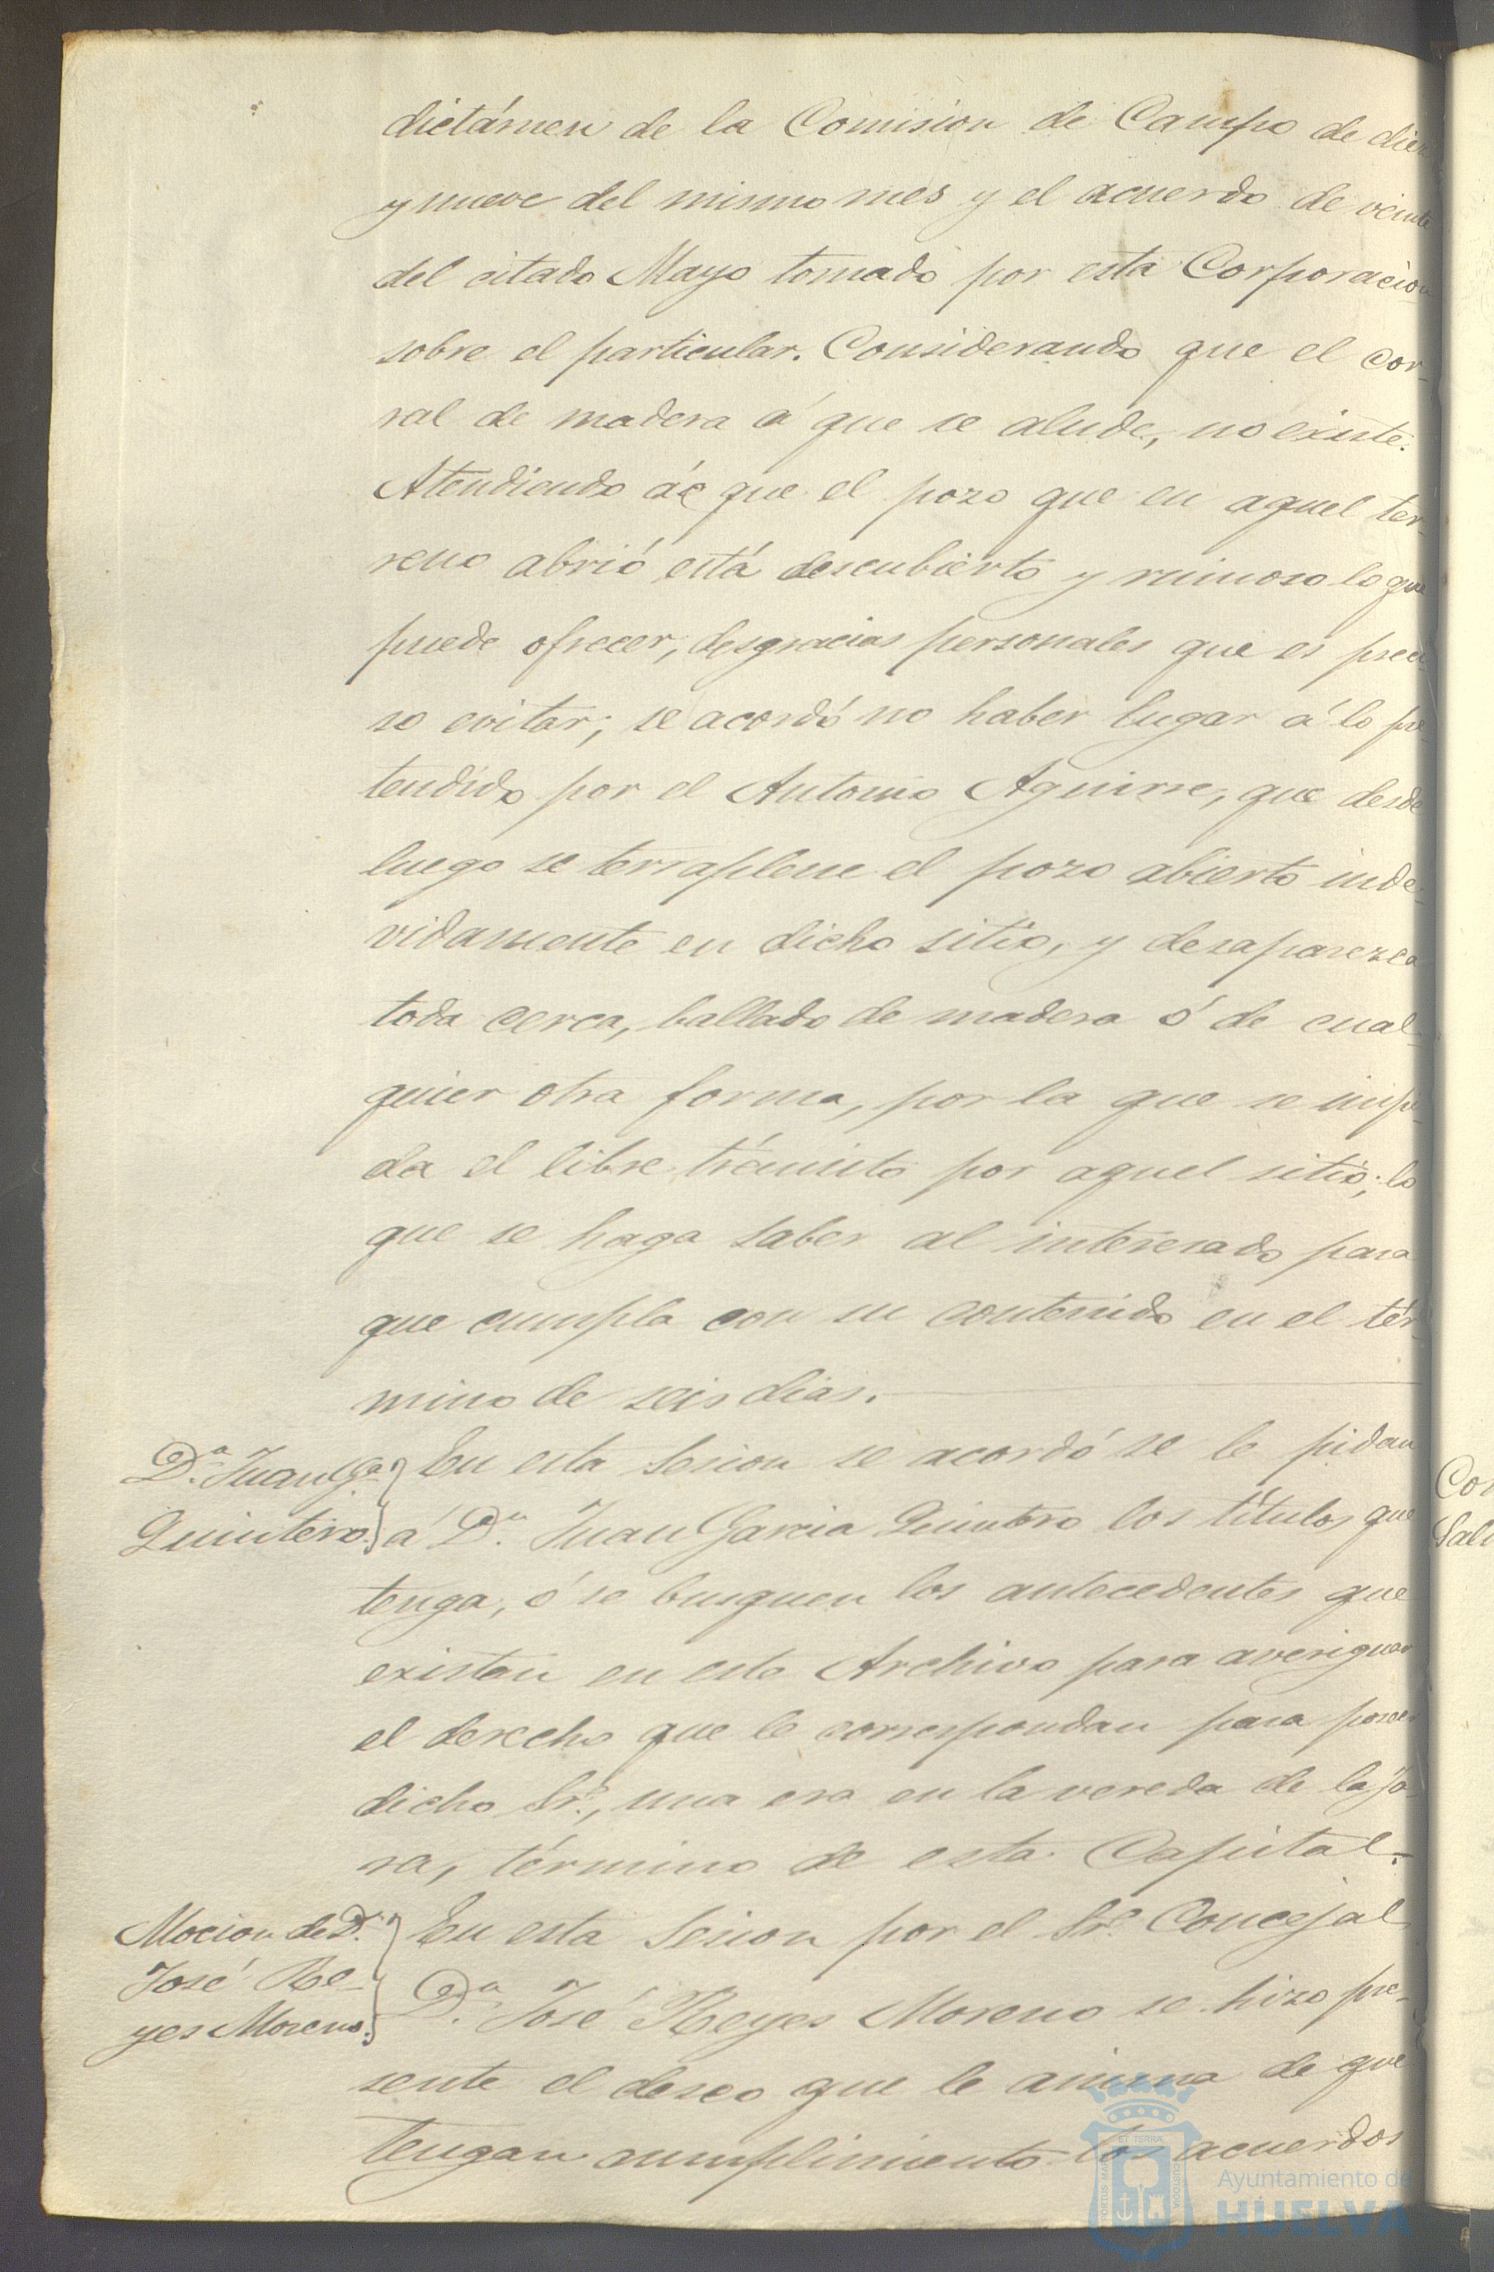 dictámen de la Comision de Campo de diez
y nueve del mismo mes y el acuerdo de veinte
del citado Mayo tomado por esta Corporacion
sobre el particular. Considerando que el cor-
ral de madera á que se alude, no existe.
Atendiendo á que el pozo que en aquel ter-
reno abrió está descubierto y ruinoso lo que
puede ofrecer, desgracias personales que es preci-
so evitar; se acordó no haber lugar á lo pre-
tendido por el Antonio Aguirre, que desde
luego se terraplene el pozo abierto inde-
vidamente en dicho sitio, y desaparezca
toda cerca, ballado de madera ó de cual-
quier otra forma, por la que se impi-
da el libre tránsito por aquel sitio; lo
que se haga saber al interesado para
que cumpla con su contenido en el tér-
mino de seis dias.
Dn. Juan Ga.
Quintero.
En esta Sesion se acordó se le pidan
á Dn. Juan Garcia Quintero los títulos que
tenga, ó se busquen los antecedentes que
existan en este Archivo para averiguar
el derecho que le correspondan para poseer
dicho Sr., una era en la vereda de la Ja-
ra, término de esta Capital.
Mocion de Dn.
José Re-
yes Moreno.
En esta Sesion por el Sr. Concejal
Dn. José Reyes Moreno se hizo pre-
sente el deseo que le anima de que
tengan cumplimiento los acuerdos
Ayuntamiento de
HUELVA